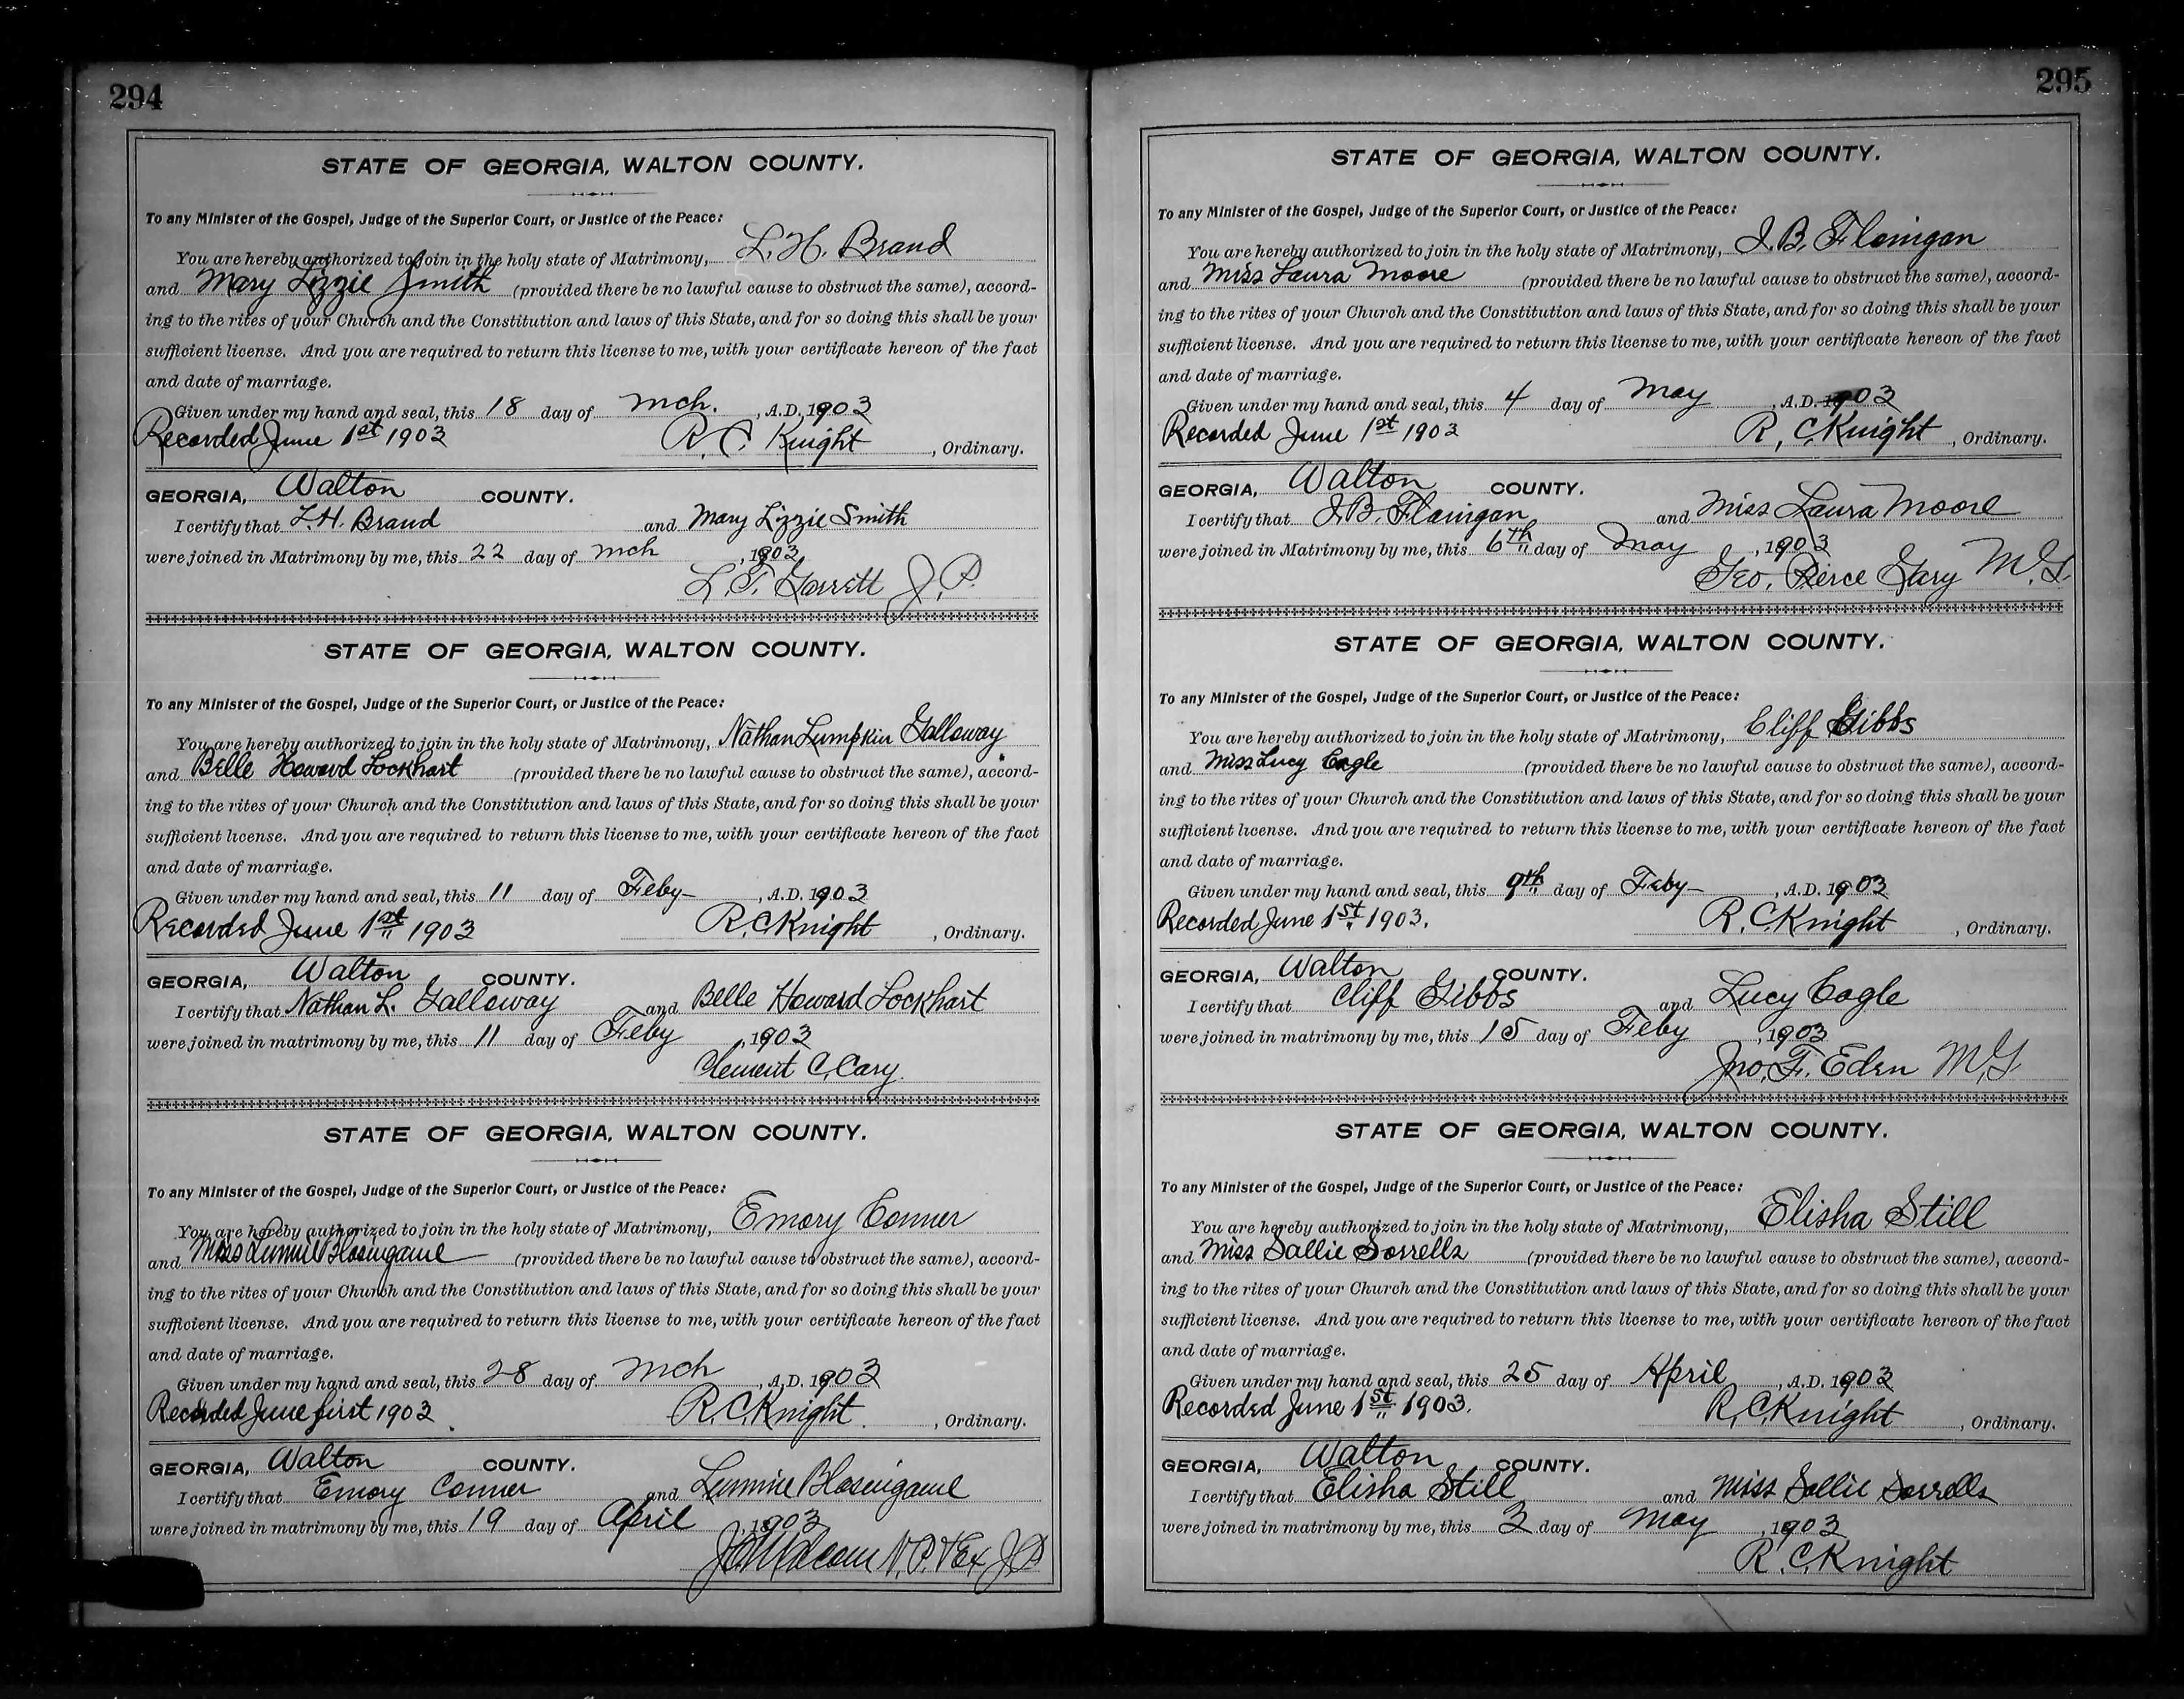 294
STATE OF GEORGIA, WALTON COUNTY.
To any Minister of the Gospel, Judge of the Superior Court, or Justice of the Peace:
You are hereby authorized to join in the holy state of Matrimony, L. H. Brand
and Mary Lizzie Smith (provided there be no lawful cause to obstruct the same), accord-
ing to the rites of your Church and the Constitution and laws of this State, and for so doing this shall be your
sufficient license. And you are required to return this license to me, with your certificate hereon of the fact
and date of marriage.
Given under my hand and seal, this 18 day of Mch. , A.D. 1903
Recorded June 1st 1903 R. C. Knight , Ordinary.
GEORGIA, Walton COUNTY.
I certify that L. H. Brand and Mary Lizzie Smith
were joined in Matrimony by me, this 22 day of Mch , 1903
L. T. Garrett J. P.
STATE OF GEORGIA, WALTON COUNTY.
To any Minister of the Gospel, Judge of the Superior Court, or Justice of the Peace:
You are hereby authorized to join in the holy state of Matrimony, Nathan Lumpkin Galloway
and Belle Howard Lockhart (provided there be no lawful cause to obstruct the same), accord-
ing to the rites of your Church and the Constitution and laws of this State, and for so doing this shall be your
sufficient license. And you are required to return this license to me, with your certificate hereon of the fact
and date of marriage.
Given under my hand and seal, this 11 day of Feby , A.D. 1903
Recorded June 1st 1903 R. C. Knight , Ordinary.
GEORGIA, Walton COUNTY.
I certify that Nathan L. Galloway and Belle Howard Lockhart
were joined in matrimony by me, this 11 day of Feby , 1903
Clement C. Cary.
STATE OF GEORGIA, WALTON COUNTY.
To any Minister of the Gospel, Judge of the Superior Court, or Justice of the Peace:
You are hereby authorized to join in the holy state of Matrimony, Emory Conner
and Miss Lummie Blasingame (provided there be no lawful cause to obstruct the same), accord-
ing to the rites of your Church and the Constitution and laws of this State, and for so doing this shall be your
sufficient license. And you are required to return this license to me, with your certificate hereon of the fact
and date of marriage.
Given under my hand and seal, this 28 day of Mch , A.D. 1903
Recorded June first 1903 R. C. Knight , Ordinary.
GEORGIA, Walton COUNTY.
I certify that Emory Conner and Lummie Blasingame
were joined in matrimony by me, this 19 day of April , 1903
N. P. & Ex J P
295
STATE OF GEORGIA, WALTON COUNTY.
To any Minister of the Gospel, Judge of the Superior Court, or Justice of the Peace:
You are hereby authorized to join in the holy state of Matrimony, J. B. Flanigan
and Miss Laura Moore (provided there be no lawful cause to obstruct the same), accord-
ing to the rites of your Church and the Constitution and laws of this State, and for so doing this shall be your
sufficient license. And you are required to return this license to me, with your certificate hereon of the fact
and date of marriage.
Given under my hand and seal, this 4 day of May , A.D. 1903
Recorded June 1st 1903 R. C. Knight , Ordinary.
GEORGIA, Walton COUNTY.
I certify that J. B. Flanigan and Miss Laura Moore
were joined in Matrimony by me, this 6th day of May , 1903
Geo. Pierce Gary M. G.
STATE OF GEORGIA, WALTON COUNTY.
To any Minister of the Gospel, Judge of the Superior Court, or Justice of the Peace:
You are hereby authorized to join in the holy state of Matrimony, Cliff Gibbs
and Miss Lucy Cagle (provided there be no lawful cause to obstruct the same), accord-
ing to the rites of your Church and the Constitution and laws of this State, and for so doing this shall be your
sufficient license. And you are required to return this license to me, with your certificate hereon of the fact
and date of marriage.
Given under my hand and seal, this 9th day of Feby , A.D. 1903
Recorded June 1st 1903. R. C. Knight , Ordinary.
GEORGIA, Walton COUNTY.
I certify that Cliff Gibbs and Lucy Cagle
were joined in matrimony by me, this 15 day of Feby , 1903
Jno. F. Eden M. G.
STATE OF GEORGIA, WALTON COUNTY.
To any Minister of the Gospel, Judge of the Superior Court, or Justice of the Peace:
You are hereby authorized to join in the holy state of Matrimony, Elisha Still
and Miss Sallie Sorrells (provided there be no lawful cause to obstruct the same), accord-
ing to the rites of your Church and the Constitution and laws of this State, and for so doing this shall be your
sufficient license. And you are required to return this license to me, with your certificate hereon of the fact
and date of marriage.
Given under my hand and seal, this 25 day of April , A.D. 1903
Recorded June 1st 1903. R. C. Knight , Ordinary.
GEORGIA, Walton COUNTY.
I certify that Elisha Still and Miss Sallie Sorrells
were joined in matrimony by me, this 3 day of May , 1903
R. C. Knight